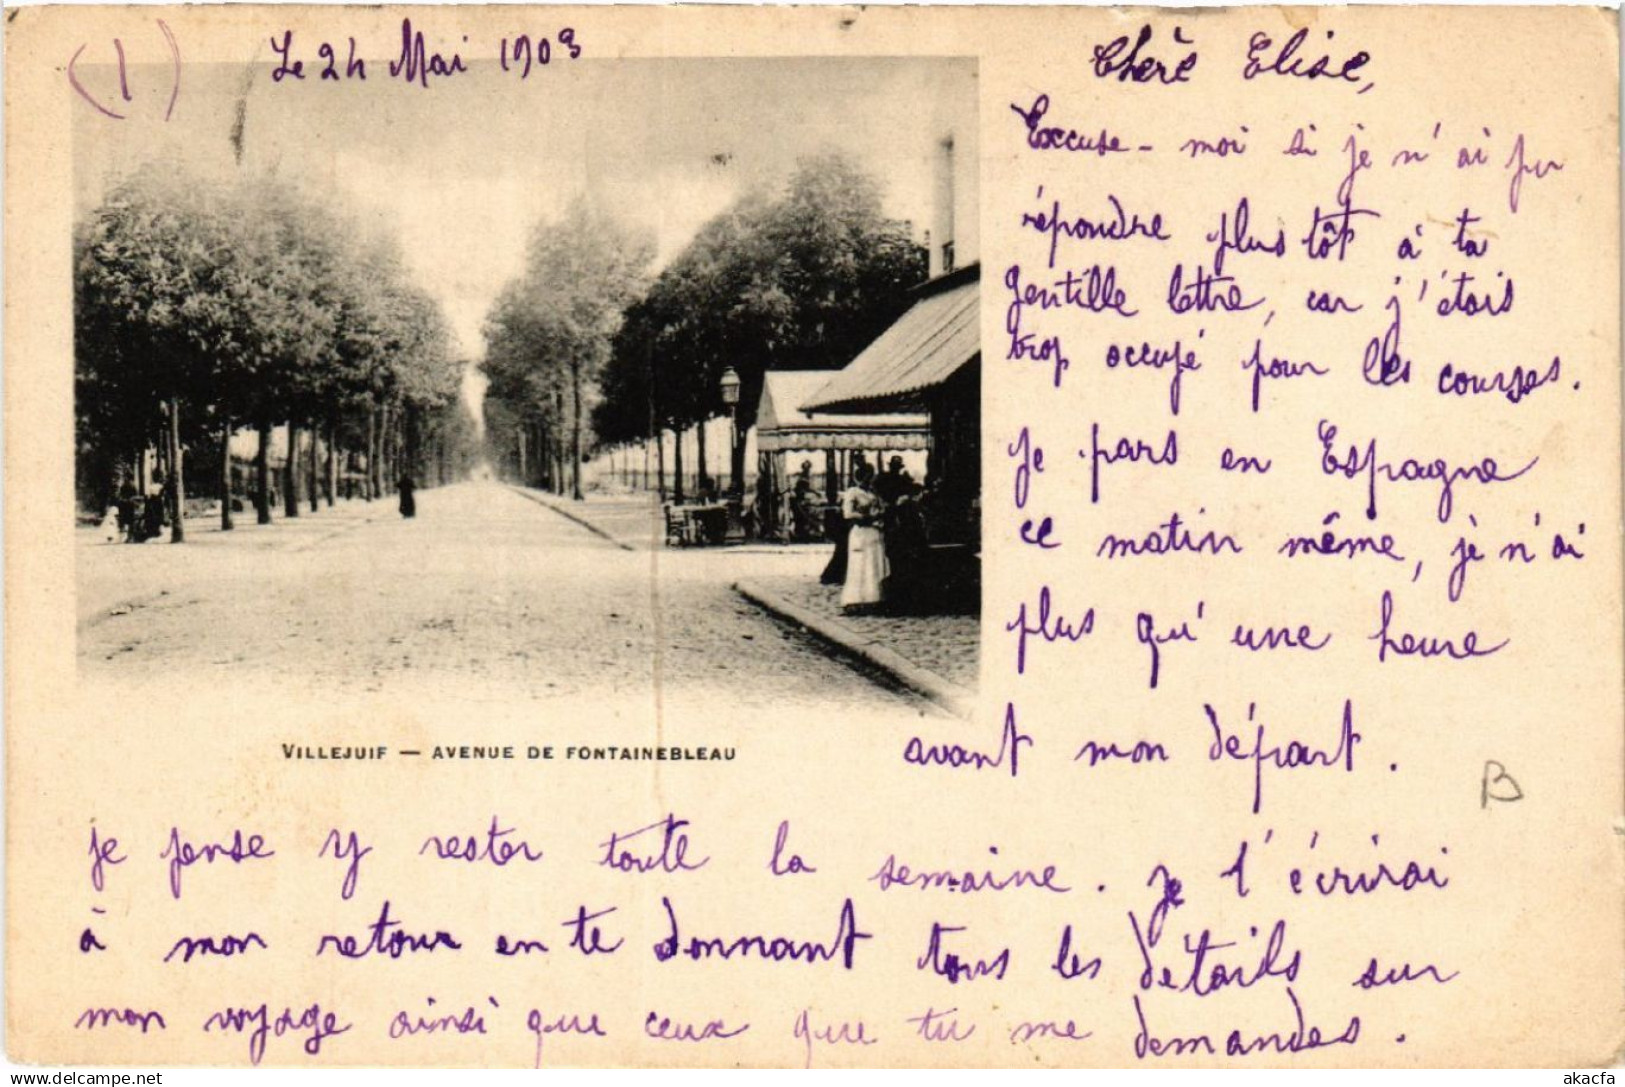 (1)
Le 24 Mai 1903
Chère Elise,
Excuse-moi si je n'ai pu
répondre plus tôt à ta
gentille lettre, car j'étais
trop occupé pour les courses.
je pars en Espagne
ce matin même, je n'ai
plus qu'une heure
avant mon départ.
VILLEJUIF — AVENUE DE FONTAINEBLEAU
B
je pense y rester toute la semaine. je t'écrirai
à mon retour en te donnant tous les détails sur
mon voyage ainsi que ceux que tu me demandes.
delcampe.net
akacfa